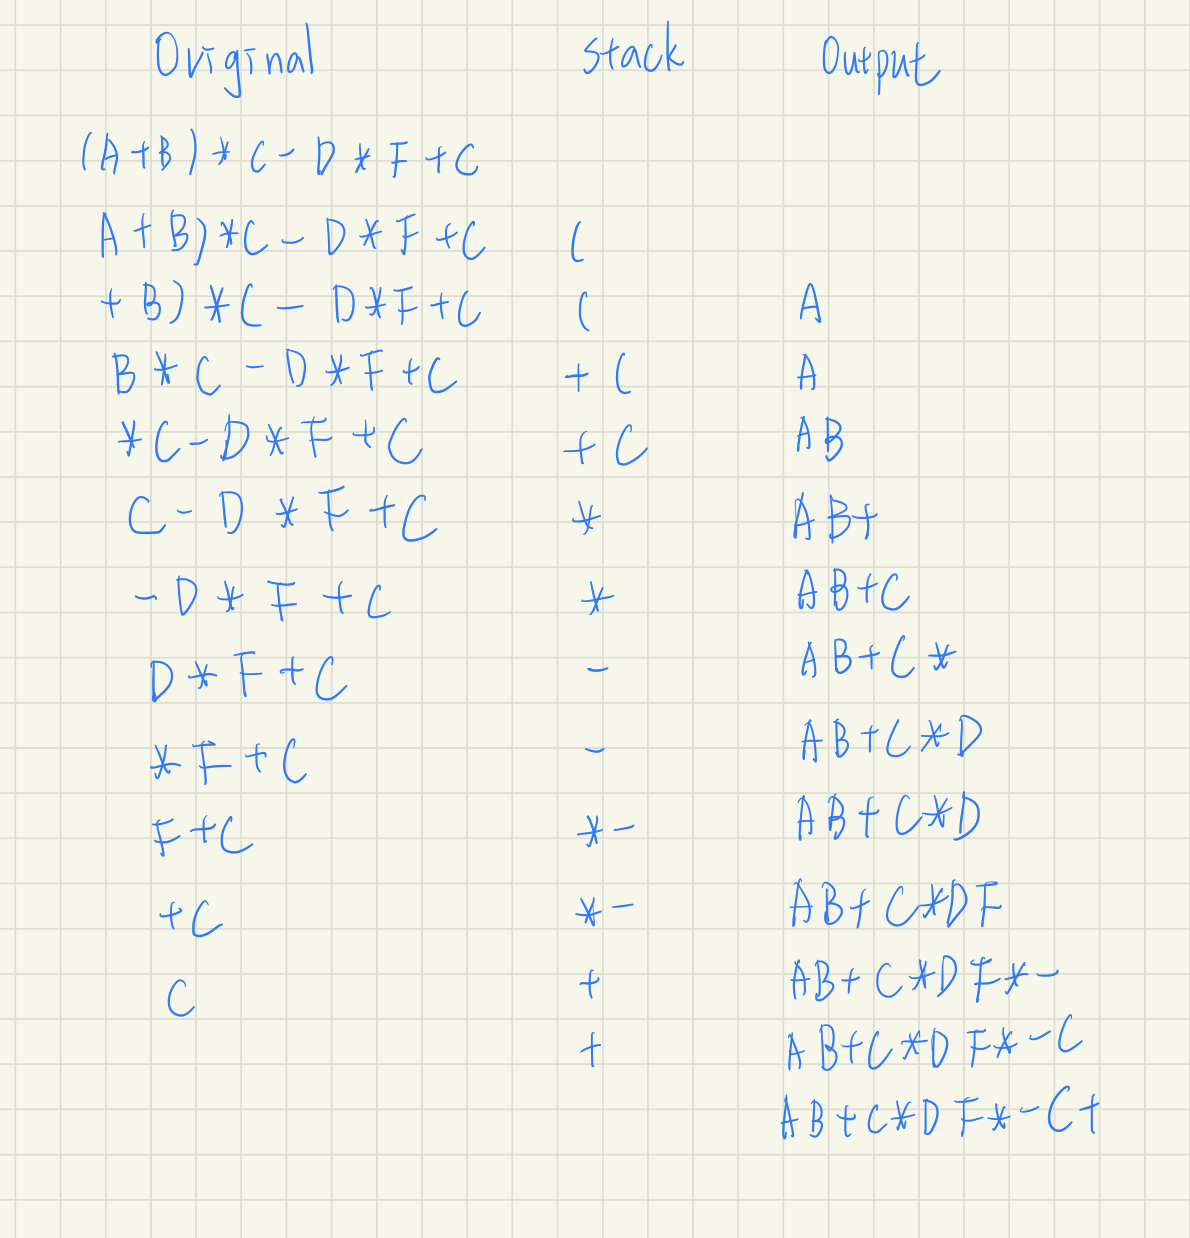 Original Stack Output
(A+B)*C-D*F+C
A+B)*C-D*F+C (
+B)*C-D*F+C ( A
B*C-D*F+C +( A
*C-D*F+C +( AB
C-D*F+C * AB+
-D*F+C * AB+C
D*F+C - AB+C*
*F+C - AB+C*D
F+C *- AB+C*D
+C *- AB+C*DF
C + AB+C*DF*-
+ AB+C*DF*-C
AB+C*DF*-C+